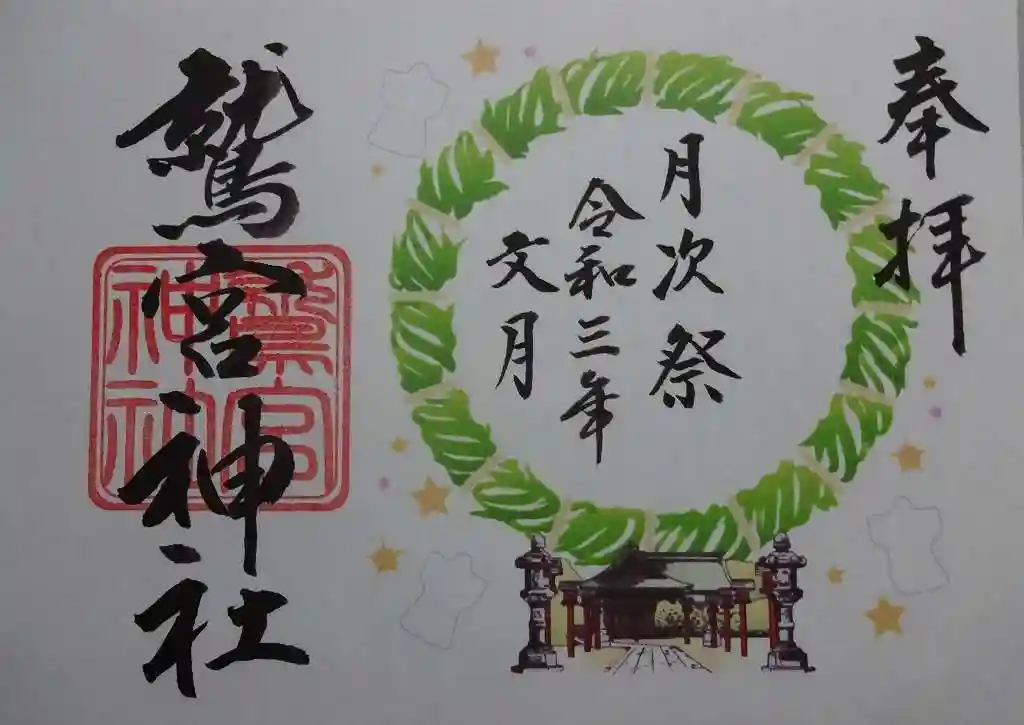 奉拝
月次祭
令和三年
文月
鷲宮神社
鷲宮神社